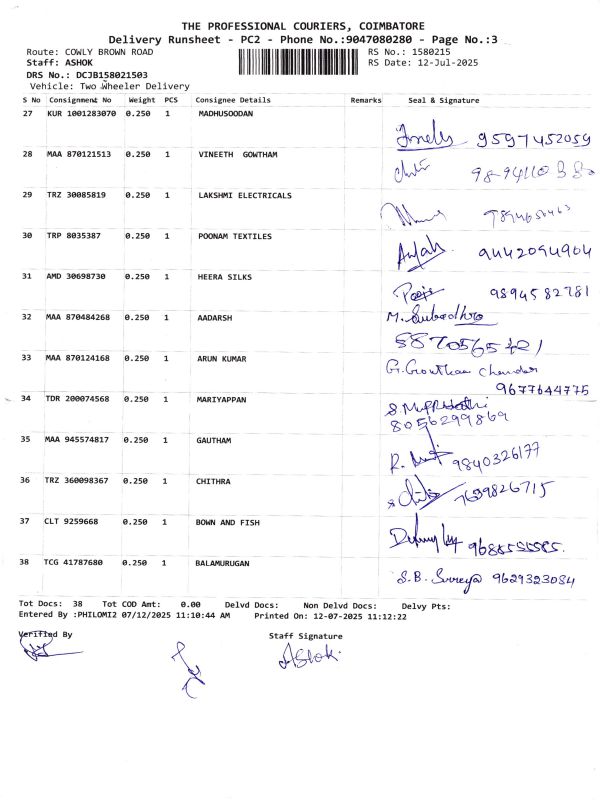 THE PROFESSIONAL COURIERS, COIMBATORE
Delivery Runsheet - PC2 - Phone No.:9047080280 - Page No.:3
Route: COWLY BROWN ROAD RS No.: 1580215
Staff: ASHOK RS Date: 12-Jul-2025
DRS No.: DCJB158021503
Vehicle: Two Wheeler Delivery
S No Consignment No Weight PCS Consignee Details Remarks Seal & Signature
27 KUR 1001283070 0.250 1 MADHUSOODAN
9597452059
28 MAA 870121513 0.250 1 VINEETH GOWTHAM
29 TRZ 30085819 0.250 1 LAKSHMI ELECTRICALS
30 TRP 8035387 0.250 1 POONAM TEXTILES
9442094904
31 AMD 30698730 0.250 1 HEERA SILKS
9894582781
32 MAA 870484268 0.250 1 AADARSH
M. Subadhra
33 MAA 870124168 0.250 1 ARUN KUMAR
G. Goutham Chander
9677644775
34 TDR 200074568 0.250 1 MARIYAPPAN
8056299869
35 MAA 945574817 0.250 1 GAUTHAM
R. 9840326177
36 TRZ 360098367 0.250 1 CHITHRA
7639826715
37 CLT 9259668 0.250 1 BOWN AND FISH
38 TCG 41787680 0.250 1 BALAMURUGAN
S.B. Sureya 9629323084
Tot Docs: 38 Tot COD Amt: 0.00 Delvd Docs: Non Delvd Docs: Delvy Pts:
Entered By :PHILOMI2 07/12/2025 11:10:44 AM Printed On: 12-07-2025 11:12:22
Verified By Staff Signature
Ashok.